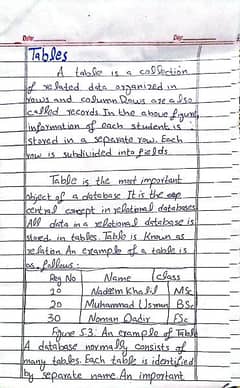 Date
Date
Tables
A table is a collection
of related data organized in
rows and column. Rows are also
called records In the above figure,
information of each student is
stored in a separate row. Each
row is subdivided into fields
Table is the most important
object of a database It is the
central concept in relational databases
All data in a relational database is
stored in tables. Table is known as
relation An example of a table is
as follows:
Reg No Name Class
10 Nadeem Khalil MSc
20 Muhammad Usman BSc
30 Noman Qadir FSc
Figure 5.3: An example of Table
A database normally consists of
many tables. Each table is identified
by separate name An important